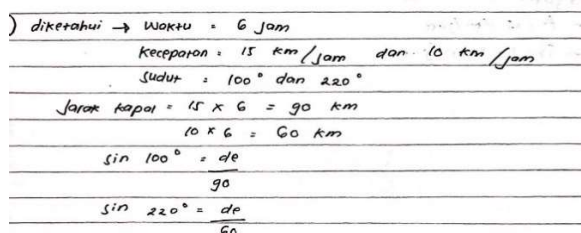 ) diketahui → Waktu = 6 Jam
Kecepatan = 15 km/jam dan 10 km/jam
Sudut = 100° dan 220°
Jarak kapal = 15 x 6 = 90 km
10 x 6 = 60 km
sin 100° = de/90
sin 220° = de/60